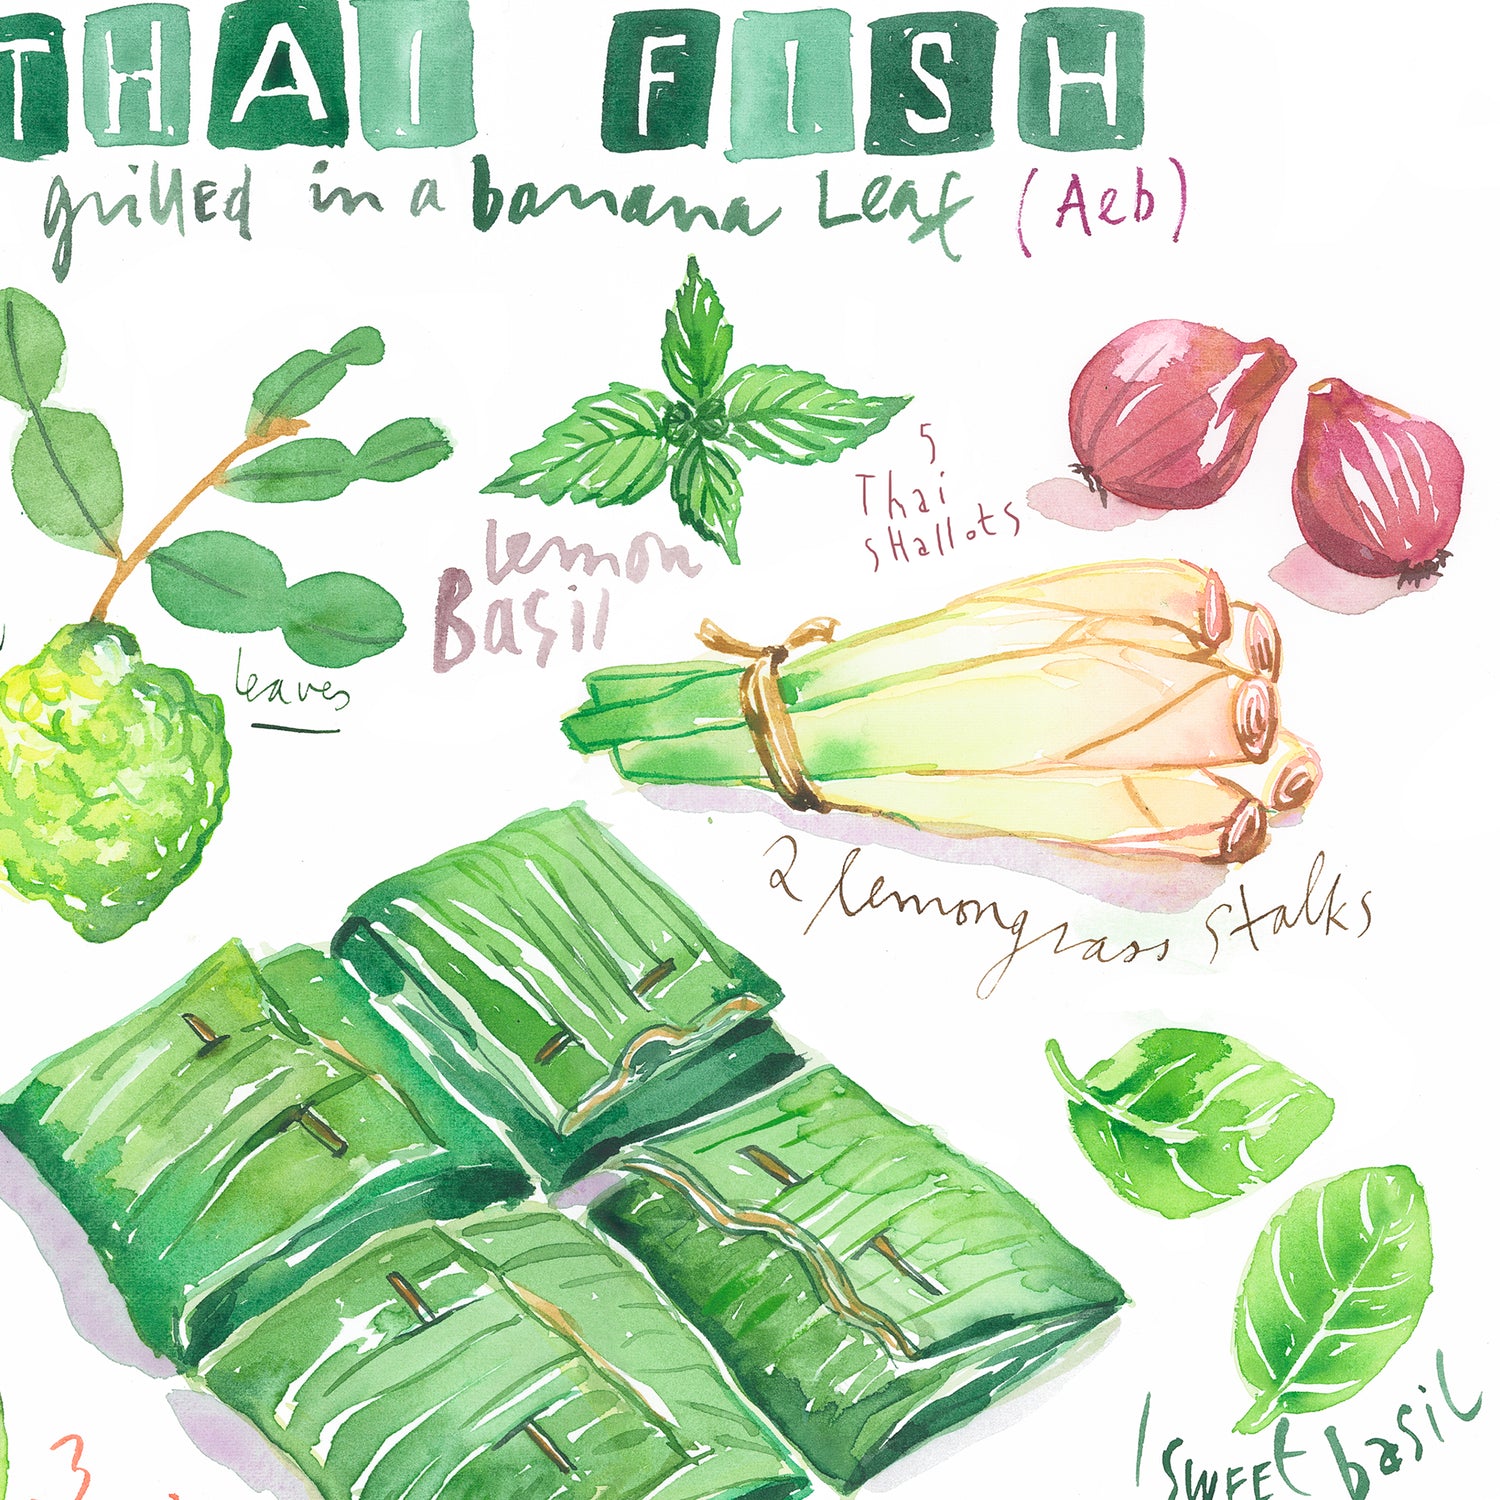 THAI FISH
grillEd in a banana Leaf (Aeb)
5
Thai
sHallots
lemon
Basil
leaves
2 lemongrass stalks
swEEt basil
3